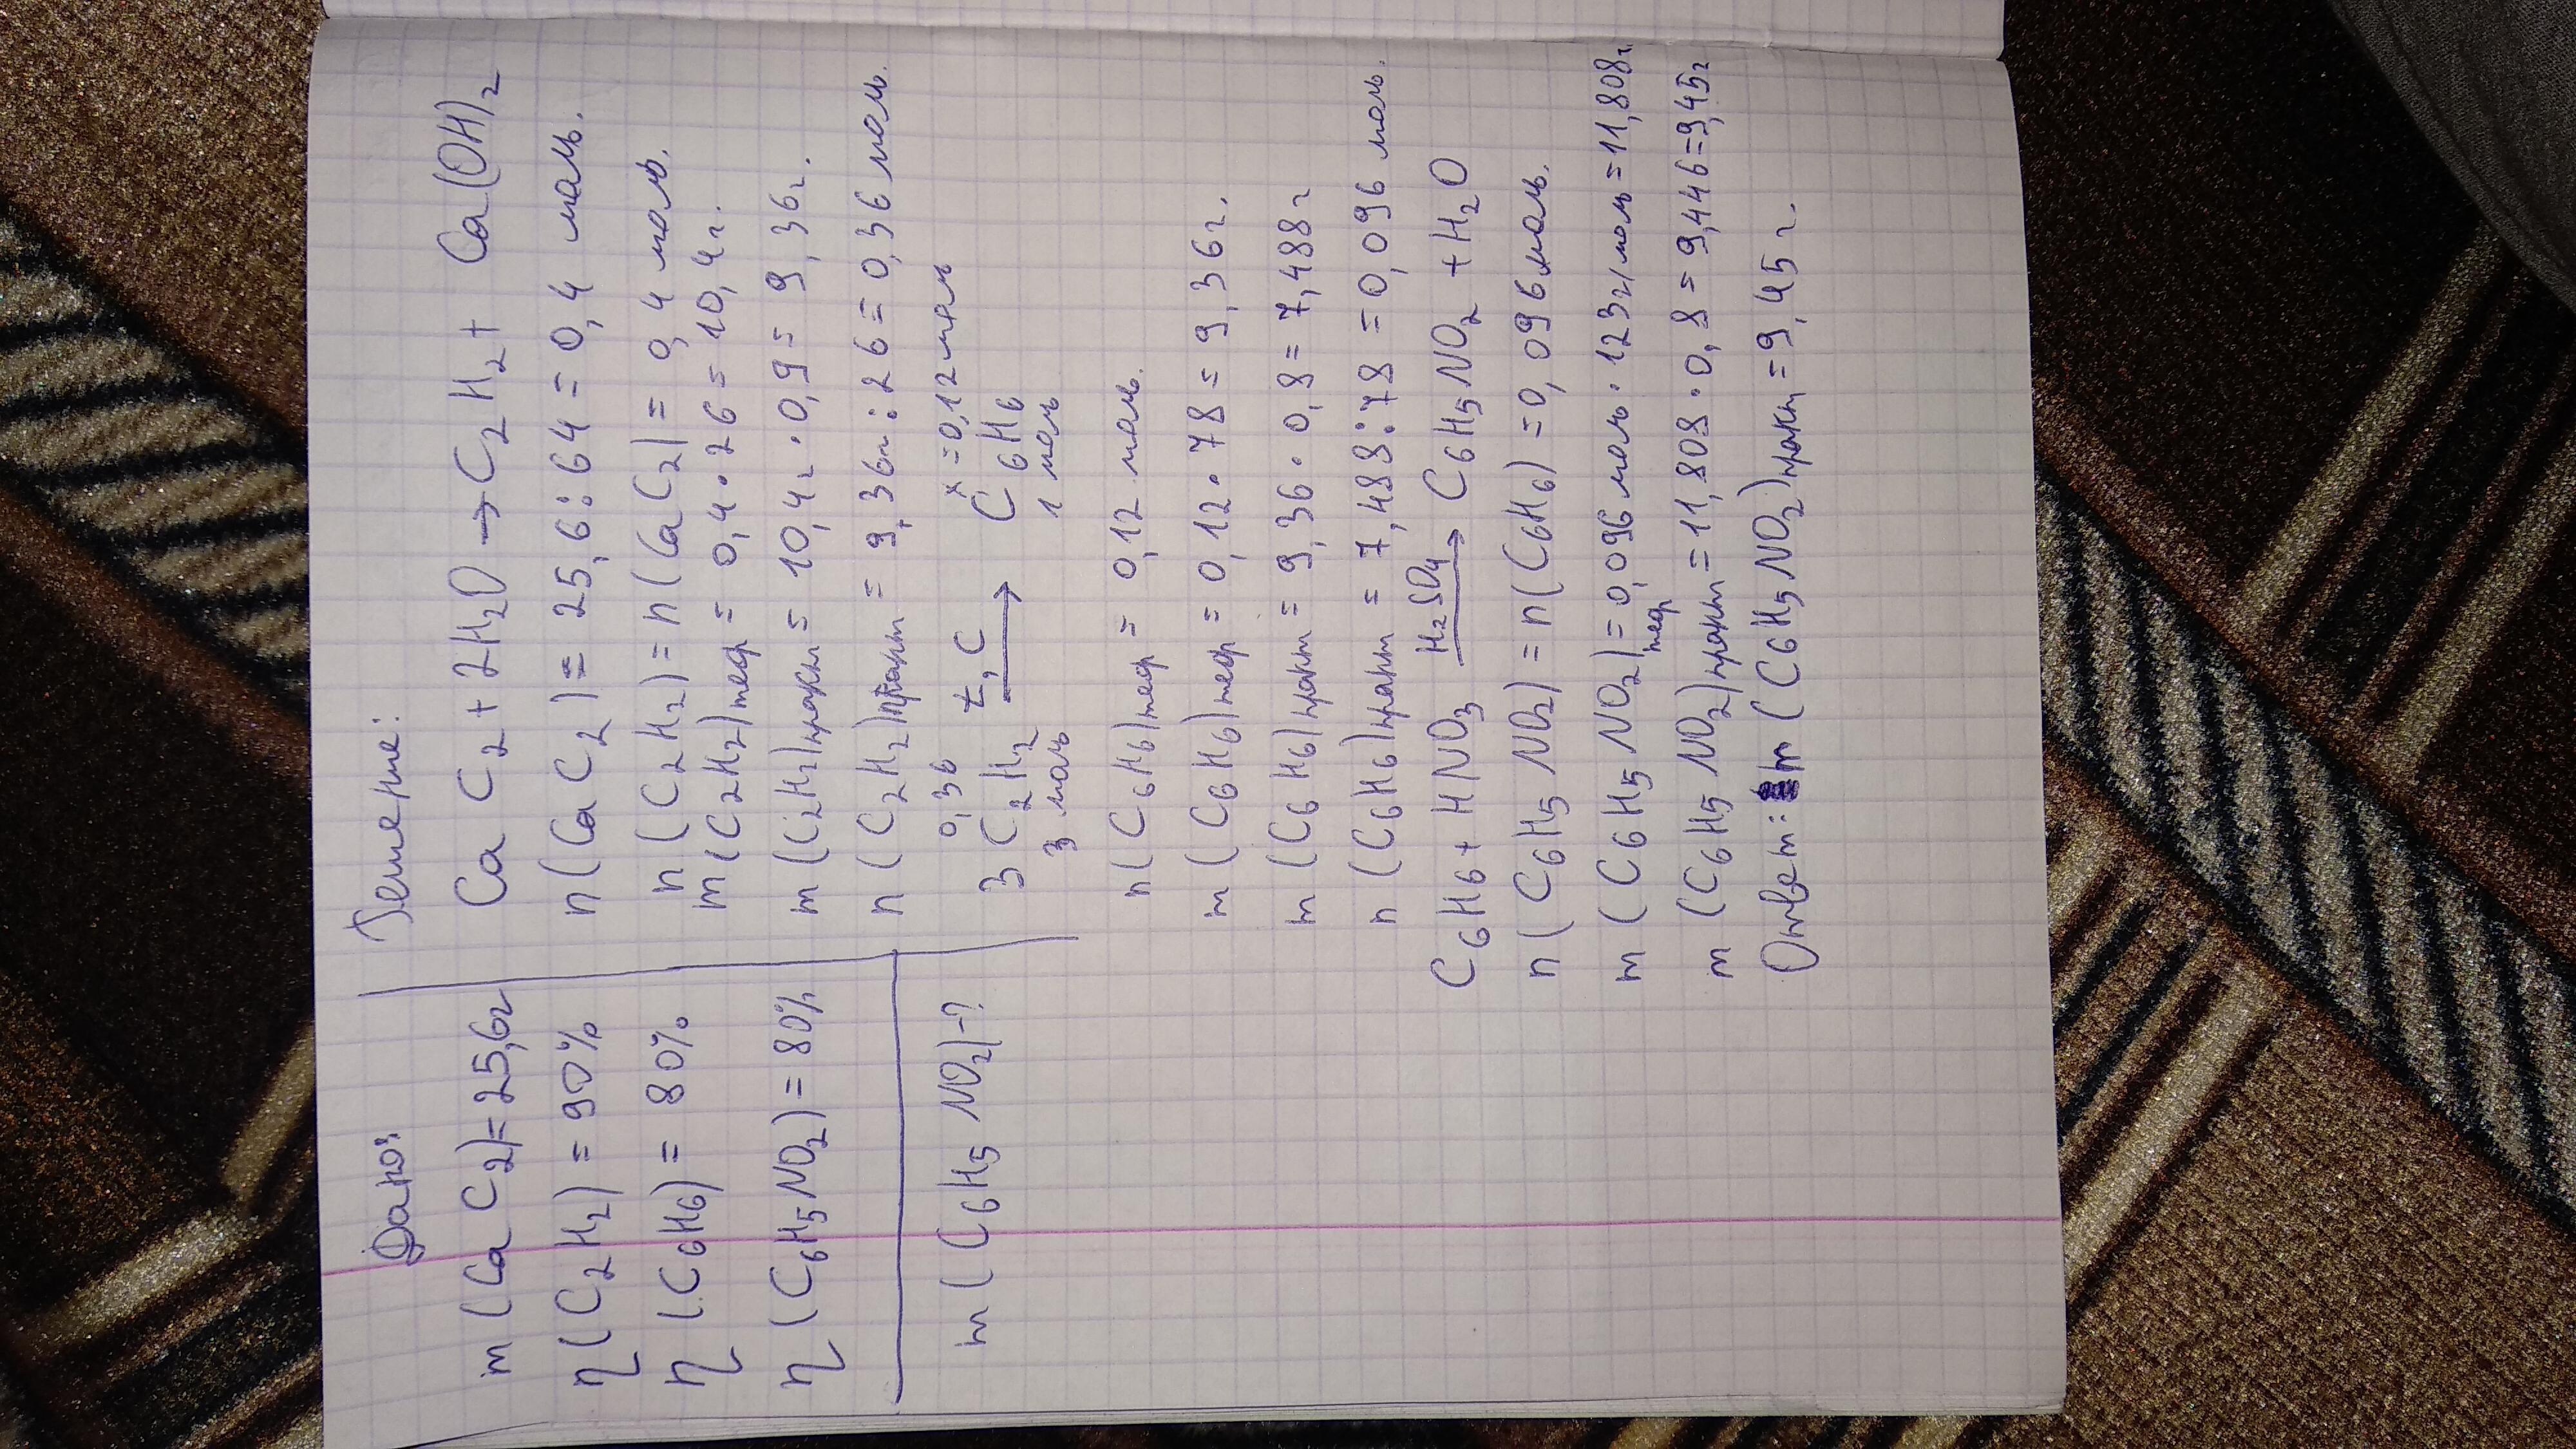 Дано:
m (CaC₂)=25,6г
η (C₂H₂) = 90%
η (C₆H₆) = 80%
η (C₆H₅NO₂) = 80%
m (C₆H₅NO₂)-?
Решение:
CaC₂ + 2H₂O → C₂H₂ + Ca(OH)₂
n (CaC₂) = 25,6 : 64 = 0,4 моль.
n (C₂H₂) = n (CaC₂) = 0,4 моль.
m (C₂H₂)теор = 0,4 · 26 = 10,4г.
m (C₂H₂)практ = 10,4г · 0,9 = 9,36г.
n (C₂H₂)практ = 9,36г : 26 = 0,36 моль.
0,36 x =0,12 моль
3C₂H₂ t,C → C₆H₆
3 моль 1 моль
n (C₆H₆)теор = 0,12 моль.
m (C₆H₆)теор = 0,12 · 78 = 9,36г.
m (C₆H₆)практ = 9,36 · 0,8 = 7,488г
n (C₆H₆)практ = 7,488 : 78 = 0,096 моль.
C₆H₆ + HNO₃ H₂SO₄ → C₆H₅NO₂ + H₂O
n (C₆H₅NO₂) = n (C₆H₆) = 0,096 моль.
m (C₆H₅NO₂)теор = 0,096 моль · 123г/моль = 11,808г.
m (C₆H₅NO₂)практ = 11,808 · 0,8 = 9,446=9,45г
Ответ: m (C₆H₅NO₂)практ = 9,45г.